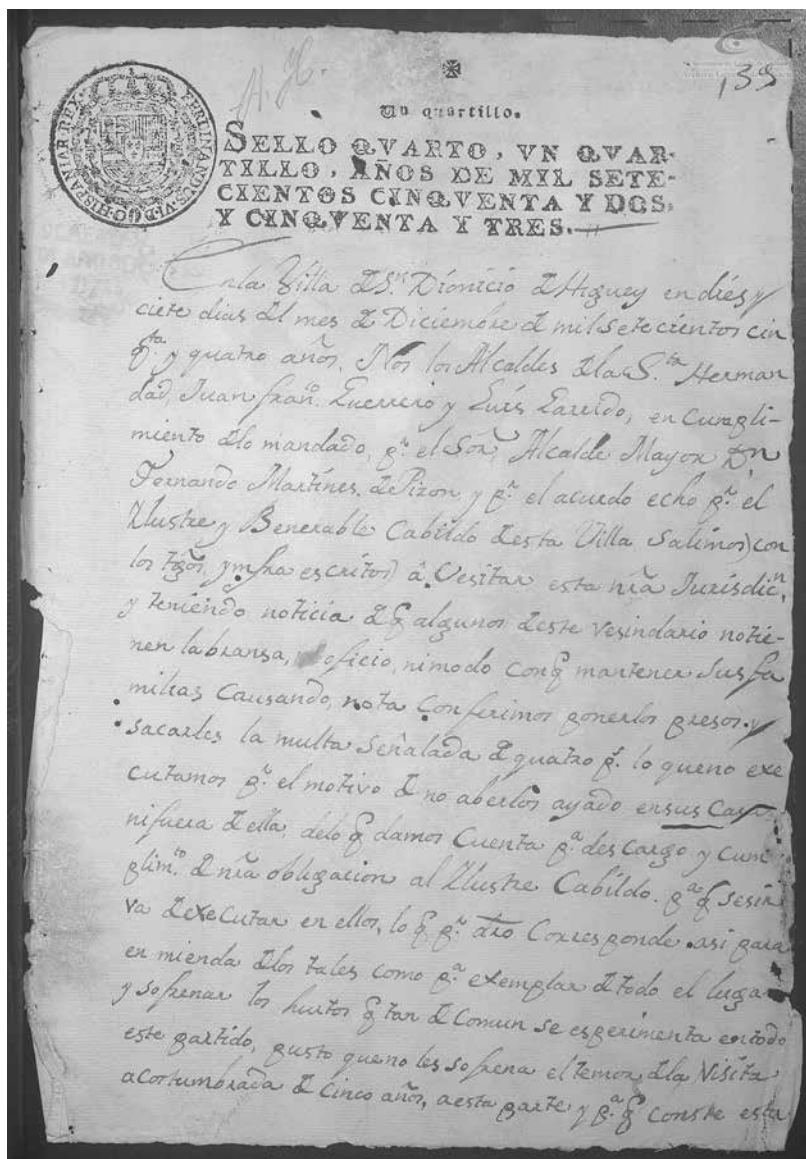 139
Un quartillo.
SELLO QVARTO, VN QVAR-
TILLO, AÑOS DE MIL SETE-
CIENTOS CINQVENTA Y DOS,
Y CINQVENTA Y TRES.
FERDINANDUS·VI·D·G·HISPANIAR·REX
En la Villa de Sn. Dionicio de Higuey en dies y
ciete dias del mes de Diciembre de mil setecientos cin
qta. y quatro años. Nos los Alcaldes de la Sta. Herman
dad, Juan Frano. Guerrero y Luis Garrido, en cumpli-
miento de lo mandado, pr. el Sór. Alcalde Mayor Dn.
Fernando Martines de Pizon, y pr. el acuerdo echo pr. el
Illustre y Benerable Cabildo desta Villa Salimos) con
los tgõs. ynfra escritos) â Vesitar esta nrã Jurisdicn.
y teniendo noticia de q algunos deste vesindario no tie-
nen labransa, oficio, ni modo con q mantener sus fa
milias Causando, nota Conferimos ponerlos presos. y
sacarles la multa Señalada de quatro ps. lo que no exe
cutamos pr. el motivo de no aberlos ayado en sus Casas
ni fuera de ella, de lo q damos Cuenta pa. descargo y cum
plimto. de nrã obligacion al Illustre Cabildo. pa. q se sir
va de exeCutar en ellos, lo q pr. dro Corresponde. asi para
en mienda de los tales como pa. exemplar de todo el lugar
y sofrenar los hurtos q tan de Comun se esperimenta en todo
este partido, pusto que no les sofrena el temor de la Visita
acostumbrada de Cinco años, a esta parte y pa. q conste esta